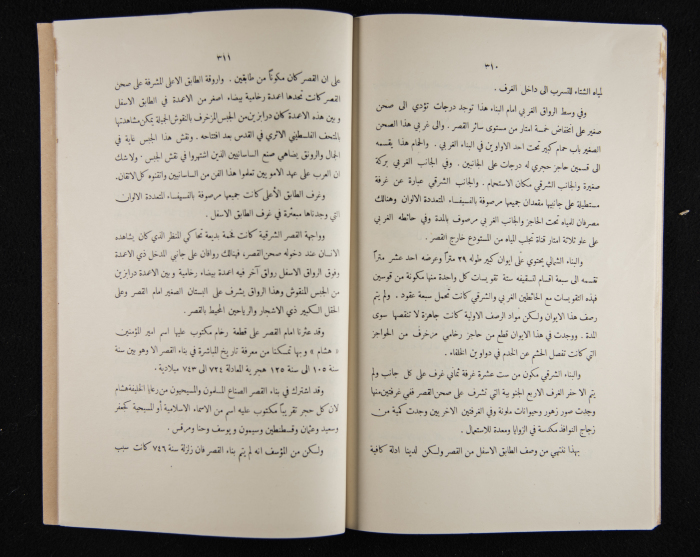 ٣١٠
لمياه الشتاء للتسرب الى داخل الغرف .
وفي وسط الرواق الغربي امام البناء هذا توجد درجات تؤدي الى صحن
صغير على انخفاض خمسة امتار من مستوى سائر القصر . والى غربي هذا الصحن
الصغير باب حمام كبير تحت احد الاواوين في البناء الغربي . والحمام هذا يقسمه
الى قسمين حاجز حجري له درجات على الجانبين . وفي الجانب الغربي بركة
صغيرة والجانب الشرقي مكان الاستحمام . والجانب الشرقي عبارة عن غرفة
مستطيلة على جانبيها مقعدان جميعها مرصوفة بالفسيفساء المتعددة الالوان وهنالك
مصرفان للمياه تحت الحاجز والجانب الغربي مرصوف بالمدة وفي حائطه الغربي
على علو ثلاثة امتار قناة تجلب المياه من المستودع خارج القصر .
والبناء الشمالي يحتوي على ايوان كبير طوله ٢٩ متراً وعرضه احد عشر متراً
تقسمه الى سبعة اقسام لتسقيفه ستة تقويسات كل واحدة منها مكونة من قوسين
فهذه التقويسات مع الحائطين الغربي والشرقي كانت تحمل سبعة عقود . ولم يتم
رصف هذا الايوان ولكن مواد الرصف الاولية كانت جاهزة لا تنقصها سوى
المدة . ووجدت في هذا الايوان قطع من حاجز رخامي مزخرف من الحواجز
التي كانت تفصل الحشم عن الخدم في دواوين الخلفاء .
والبناء الشرقي مكون من ست عشرة غرفة ثماني غرف على كل جانب ولم
يتم الا حفر الغرف الاربع الجنوبية التي تشرف على صحن القصر ففي غرفتين منها
وجدت صور زهور وحيوانات ملونة وفي الغرفتين الاخريين وجدت كمية من
زجاج النوافذ مكدسة في الزوايا ومعدة للاستعمال .
بهذا ننتهي من وصف الطابق الاسفل من القصر ولكن لدينا ادلة كافية
٣١١
على ان القصر كان مكوناً من طابقين . واروقة الطابق الاعلى المشرفة على صحن
القصر كانت تحدها اعمدة رخامية بيضاء اصغر من الاعمدة في الطابق الاسفل
وبين هذه الاعمدة كان درابزين من الجبس المزخرف بالنقوش الجميلة يمكن مشاهدتها
بالمتحف الفلسطيني الاثري في القدس بعد افتتاحه . ونقش هذا الجبس غاية في
الجمال والرونق يضاهي صنع الساسانيين الذين اشتهروا في نقش الجبس . ولاشك
ان العرب على عهد الامويين تعلموا هذا الفن من الساسانيين واتقنوه كل الاتقان .
وغرف الطابق الأعلى كانت جميعها مرصوفة بالفسيفساء المتعددة الالوان
التي وجدناها مبعثرة في غرف الطابق الاسفل .
وواجهة القصر الشرقية كانت فخمة بديعة تحاكي المنظر الذي كان يشاهده
الانسان عند دخوله صحن القصر، فهنالك رواقان على جانبي المدخل ذي الاعمدة
وفوق الرواق الاسفل رواق آخر فيه اعمدة بيضاء رخامية وبين الاعمدة درابزين
من الجبس المنقوش وهذا الرواق يشرف على البستان الصغير امام القصر وعلى
الحقل الكبير ذي الاشجار والرياحين المحيط بالقصر .
وقد عثرنا امام القصر على قطعة رخام مكتوب عليها اسم امير المؤمنين
« هشام » وبها تمكنا من معرفة تاريخ المباشرة في بناء القصر الا وهو بين سنة
١٠٥ الى سنة ١٢٥ هجرية المعادلة ٧٢٤ الى ٧٤٣ ميلادية .
وقد اشترك في بناء القصر الصناع المسلمون والمسيحيون من رعايا الخليفة هشام
لان كل حجر تقريباً مكتوب عليه اسم من الاسماء الاسلامية أو المسيحية كجعفر
وسعيد وعثمان وقسطنطين وسيمون ويوسف وحنا ومرقس .
ولكن من المؤسف انه لم يتم بناء القصر فان زلزلة سنة ٧٤٦ كانت سبب